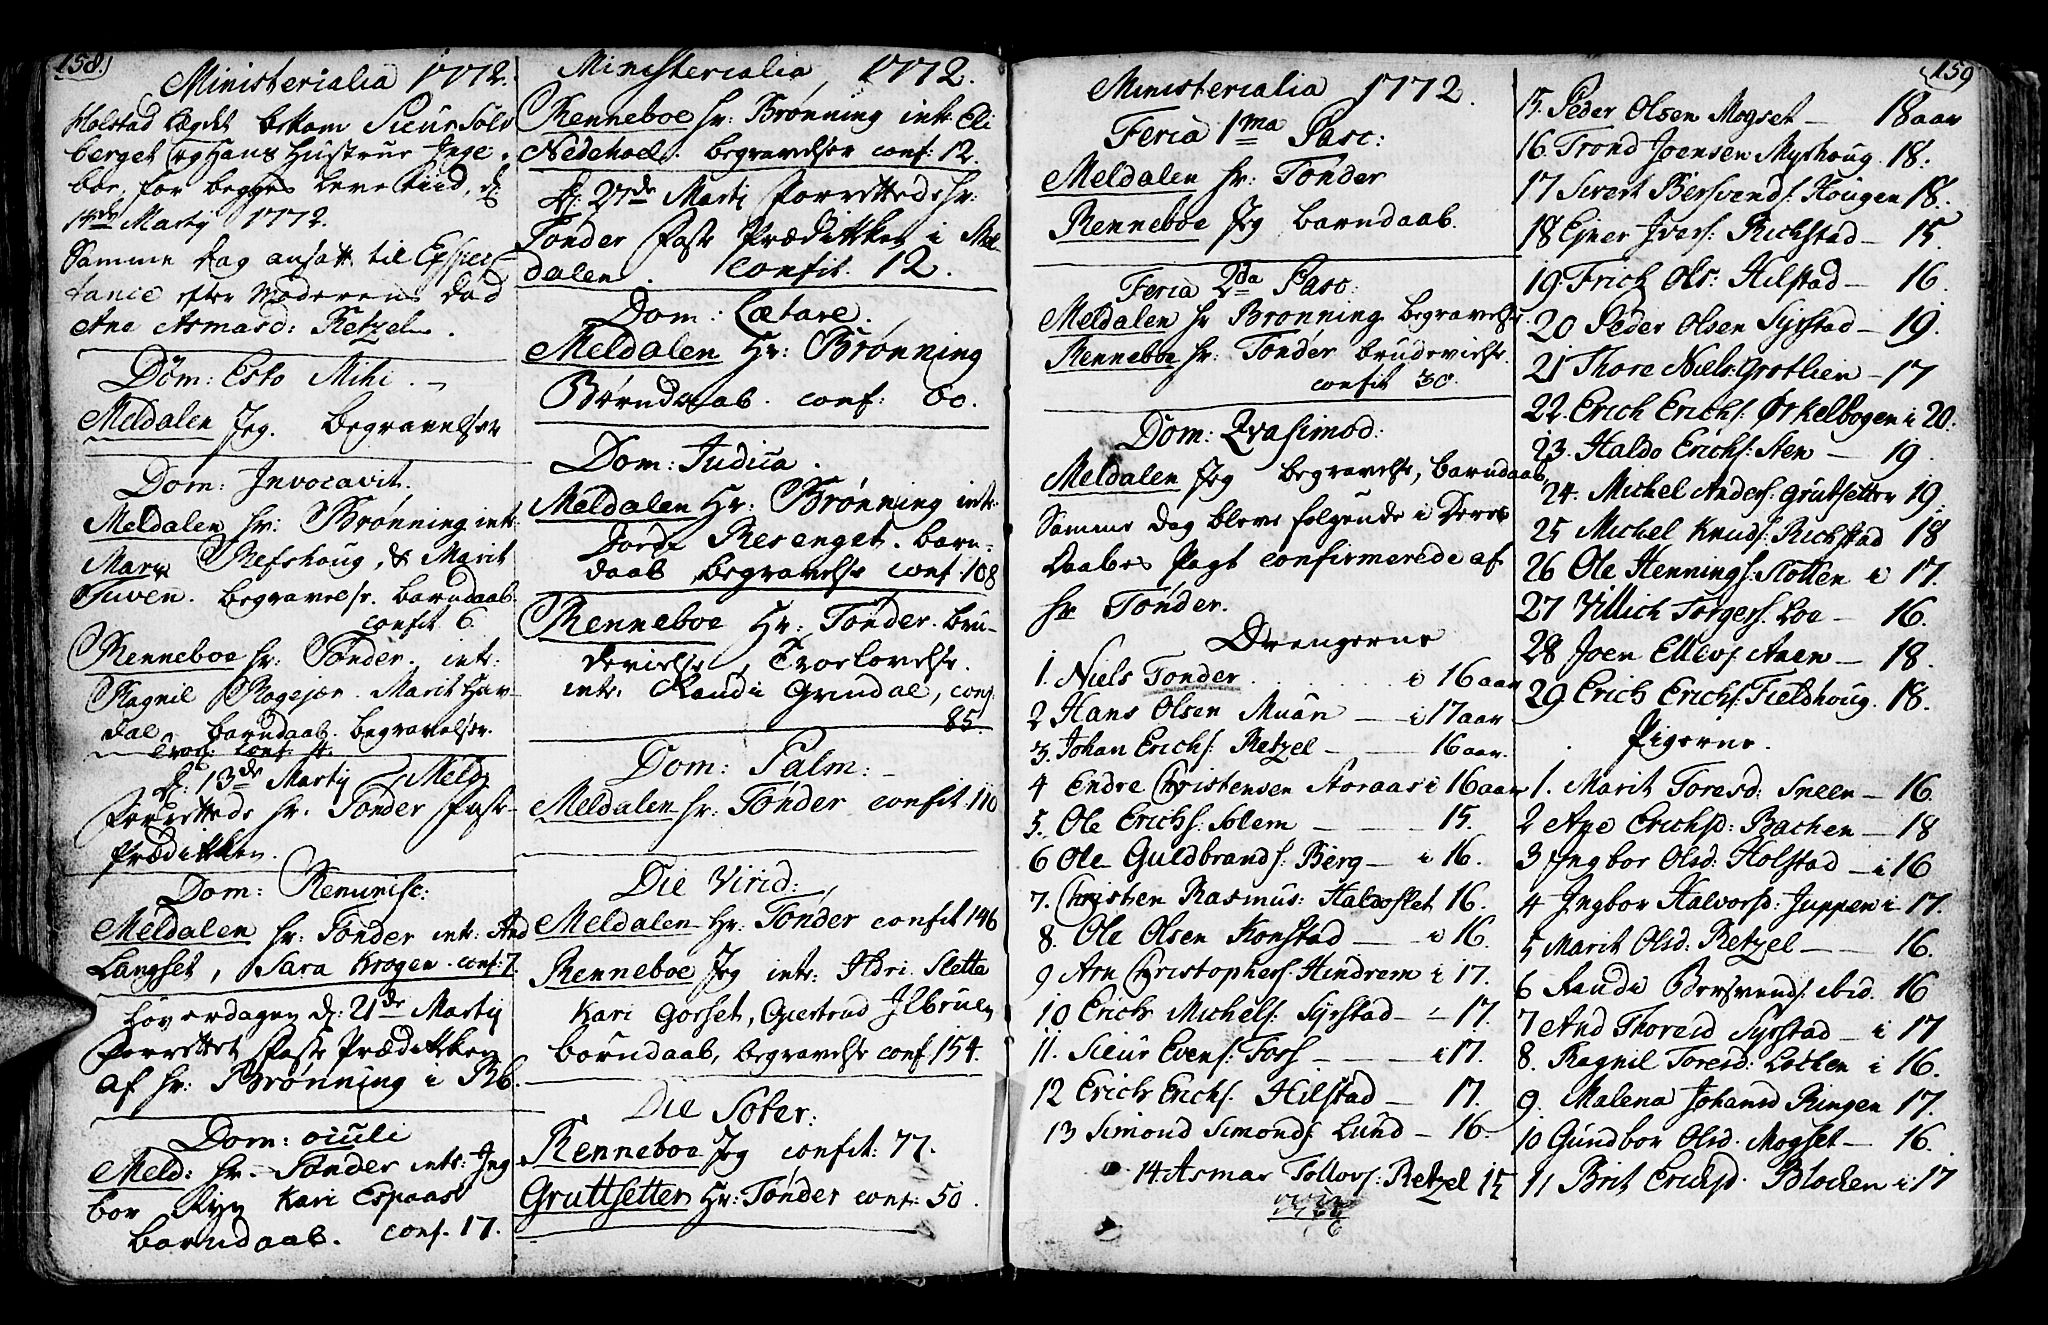 158.
Ministerialia 1772.
Holstad Legdet bekom Siur Solv
berget og Hans Hustrue Inge-
bor, for begges Leve tiid, d:
14de Martj 1772.
Samme dag ansatt til Exspec-
tance efter Moderens død
Ane Asmasd: Retzel.
Dom: Esto Mihi.
Meldalen Jeg. begravelser
Dom: Invocavit.
Meldalen hr: Brønning intr:
Mary Refshoug, & Marit
Tuven. begravelse. barndaab.
confit. 6.
Renneboe hr: Tønder. intr:
Ragnil Bogejær. Marit Hav-
dal barndaab. begravelser.
Trol. Conf. 4.
d: 13de Martij i Meld:
forrettede hr. Tønder Faste-
prædikken.
Dom: Reminisc:
Meldalen hr. Tønder intr: And
Langset, Sara Krogen. conf: 7.
Løverdagen d: 21de Martij
forrettet Faste Prædikken
af hr: Brønning i Rb.
Dom: oculi
Meld: hr. Tønder intr: Ing
bor Ryy Kari Espaas
barndaab. conf. 17.
Ministerialia 1772.
Renneboe hr: Brønning intr: Eli
Nedehoel. begravelser conf: 12.
d: 27de Martj forrettede hr:
Tønder Faste Prædikken i Mel
dalen. Confit. 12.
Dom: Lætare.
Meldalen Hr: Brønning
Børndaab. conf: 60.
Dom: Judica.
Meldalen Hr: Brønning intr:
Dorde Resenget. barn-
daab begravelse conf. 108
Renneboe Hr: Tønder. bru-
devielse, Troelovelse.
intr: Randi Grindal, conf
85.
Dom: Palm:
Meldalen hr: Tønder confit: 110
Die Virid:
Meldalen Hr: Tønder confit 146
Renneboe Jeg intr: Ildri Sletta
Kari Gorset, Giertrud Ilbruen
børndaab, begravelse conf 154.
Die Soter:
Renneboe Jeg confit: 77.
Gruttsetter Hr: Tønder conf: 50.
159
Ministerialia 1772.
Feria 1ma Pasc:
Meldalen hr: Tønder
Renneboe Jeg barndaab.
Feria 2da Pasc:
Meldalen hr Brønning begravelse.
Renneboe hr: Tønder brudevielse.
confit 30.
Dom: Qvasimod:
Meldalen Jeg begravelse, barndaab,
Samme dag bleve følgende i Deres
Daabes Pagt confirmerede af
hr Tønder.
Drengerne
1. Niels Tønder i 16 aar
2 Hans Olsen Muan — i 17 aar
3. Johan Erichs: Retzel — 16 aar.
4 Endre Christensen Aoraas i 16 aar
5. Ole Erichs: Solem — 15.
6 Ole Guldbrands: Berg — i 16.
7. Christen Rasmus: Haldoslet 16.
8. Ole Olsen Konstad — i 16.
9 Arn Christophers: Hindrem i 17.
10 Erich Michels: Syrstad — 17.
11. Siur Evens: Foss — i 17.
12 Erich Erichs. Hilstad — 17.
13 Simond Simonds: Lund — 16.
14. Asmar Follovs: Retzel 15
15. Peder Olsen Mogset — 18 aar
16. Trond Joensen Myrhoug. 18.
17 Sivert Bersvends: Hougen 18.
18 Ejner Ivers: Richstad — 15.
19. Frich Ols: Hilstad — 16.
20 Peder Olsen Syrstad — 19.
21 Thore Niels: Grotlien — 17
22. Erich Erichs: Ørkelbogen i 20.
23. Haldo Erichs: Aen — 19.
24. Michel Anders: Grutsetter 19.
25 Michel Knuds: Richstad 18
26 Ole Hennings: Slotten i 17.
27 Villich Torgers: Loe — 16.
28 Joen Ellevs: Anen — 18.
29. Erich Erichs: Fieldhoug. 18.
Pigerne.
1. Marit Toresd: Sneen — 16.
2 Ane Erichsd: Bachen — 18
3 Ingbor Olsd: Holstad — i 16
4 Ingbor Halvorsd: Juppen i 17.
5 Marit Olsd: Retzel — 16.
6 Randi Bersvends: ibid. 16
7 And Thoresd Syrstad — i 17
8. Ragnil Toresd: Løkken i 16.
9. Malena Johansd Ringen 17.
10 Gundbor Olsd. Mogset — 16.
11 Brit Erichsd. Blochen i 17